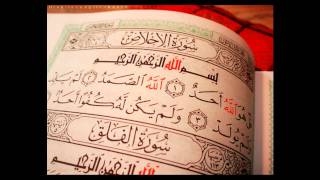 سُورَةُ الإِخْلَاصِ
بِسْمِ اللَّهِ الرَّحْمَٰنِ الرَّحِيمِ
هُوَ اللَّهُ أَحَدٌ ۝١ اللَّهُ الصَّمَدُ ۝٢ لَمْ يَلِدْ
يُولَدْ ۝٣ وَلَمْ يَكُن لَّهُ كُفُوًا أَحَدٌ
سُورَةُ الْفَلَقِ
بِسْمِ اللَّهِ الرَّحْمَٰنِ الرَّحِيمِ